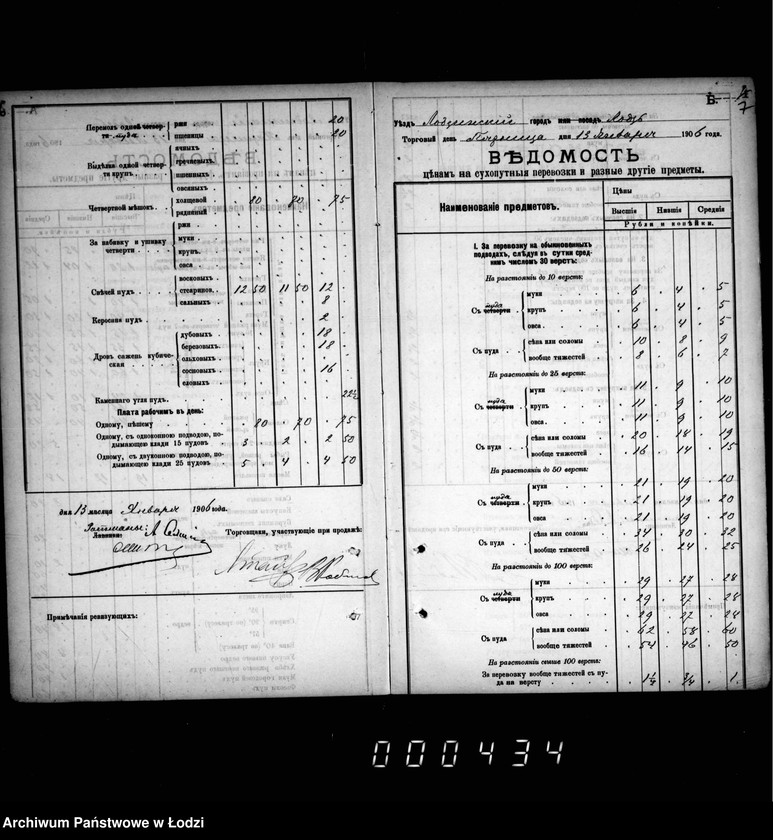 Перемолъ одной четвер-
ти пуда . . . .
ржи . . . . 20
пшеницы . . . . 20
Выдѣлка одной четвер-
ти крупъ .
ячныхъ
гречневыхъ
пшенныхъ
овсяныхъ
Четвертной мѣшокъ .
холщевой 80 70 75
рядняный
За набивку и ушивку
четверти
ржи
муки
крупъ
овса
Свѣчей пудъ . . . .
восковыхъ
стеаринов. 12 50 11 50 12
сальныхъ 8
Керосина пудъ . . . . 2
Дровъ сажень кубиче-
ская . . . .
дубовыхъ 18
березовыхъ 18
ольховыхъ
сосновыхъ 16
еловыхъ
Каменнаго угля пудъ. 22½
Плата рабочимъ въ день:
Одному, пѣшему 80 70 75
Одному, съ одноконною подводою, по-
дымающею клади 15 пудовъ 3 2 2 50
Одному, съ двуконною подводою, по-
дымающею клади 25 пудовъ 5 4 4 50
дня 13 мѣсяца Января 1906 года.
Торговцы, участвующіе при продажѣ:
Примѣчанія ревизующихъ:
В.
7
Уѣздъ Лодзинскій городъ или посадъ Лодзь
Торговый день Пятница дня 13 Января 1906 года.
ВѢДОМОСТЬ
цѣнамъ на сухопутныя перевозки и разные другіе предметы.
Наименованіе предметовъ.
Цѣны
Высшія Низшія Среднія
Рубли и копѣйки.
I. За перевозку на обыкновенныхъ
подводахъ, слѣдуя въ сутки сред-
нимъ числомъ 30 верстъ:
На разстояніи до 10 верстъ:
Съ четверти пуда
муки 6 4 5
крупъ 6 4 5
овса 6 4 5
Съ пуда
сѣна или соломы 10 8 9
вообще тяжестей 8 6 7
На разстояніи до 25 верстъ:
Съ четверти пуда
муки 11 9 10
крупъ 11 9 10
овса 11 9 10
Съ пуда
сѣна или соломы 20 18 19
вообще тяжестей 16 14 15
На разстояніи до 50 верстъ:
Съ четверти пуда
муки 21 19 20
крупъ 21 19 20
овса 21 19 20
Съ пуда
сѣна или соломы 34 30 32
вообще тяжестей 26 24 25
На разстояніи до 100 верстъ:
Съ четверти пуда
муки 29 27 28
крупъ 29 27 28
овса 29 27 28
Съ пуда
сѣна или соломы 62 58 60
вообще тяжестей 54 46 50
На разстояніи свыше 100 верстъ:
За перевозку вообще тяжестей съ пу-
да на версту 1¼ ¾ 1
000434
Archiwum Państwowe w Łodzi